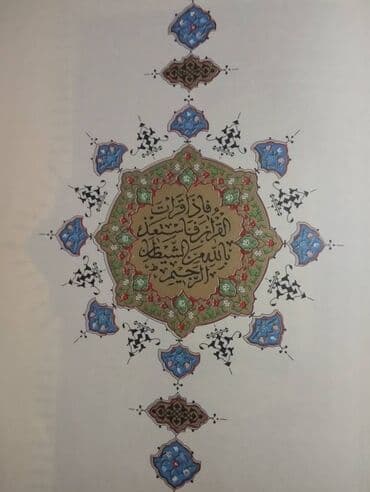 فَاِذَا قَرَأْتَ
الْقُرْاٰنَ فَاسْتَعِذْ
بِاللّٰهِ مِنَ الشَّيْطَانِ
الرَّجِيمِ